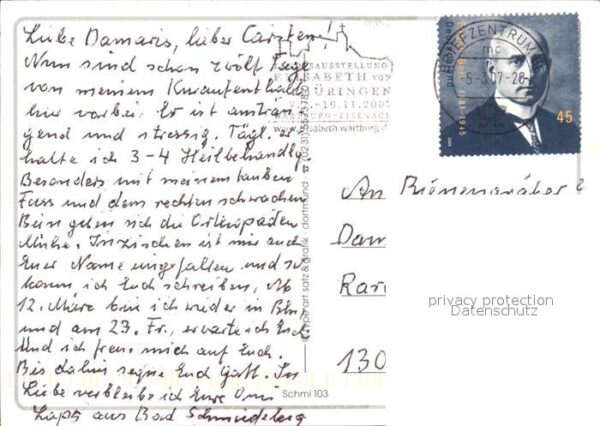 Liebe Damaris, lieber Carsten!
Nun sind schon zwölf Tage
von meinem Kuraufenthalt
hier vorbei. Es ist anstren
gend und stressig. Tägl. er
halte ich 3-4 Heilbehandlg.
Besonders mit meinem tauben
Fuss und dem rechten schwachen
Bein geben sich die Orthopäden
Mühe. Inzwischen ist mir auch
Euer Name eingefallen und so
kann ich Euch schreiben. Ab
12. März bin ich wieder in Bln
und am 23. Fr., erwarte ich Euch
Und ich freue mich auf Euch.
Bis dahin segne Euch Gott. In
Liebe verbleibe ich Eure Omi
aus Bad Schmiedeberg
AUSSTELLUNG
ELISABETH VON
THÜRINGEN
7.7.-19.11.2007
WARTBURG-EISENACH
www.elisabeth.wartburg.de
BRIEFZENTRUM
mc
-5.-3.07-20
1881-1945
45
satz&grafik · dortmund · ☎ (0231)
Schmi 103
An
Dam
130
privacy protection
Datenschutz